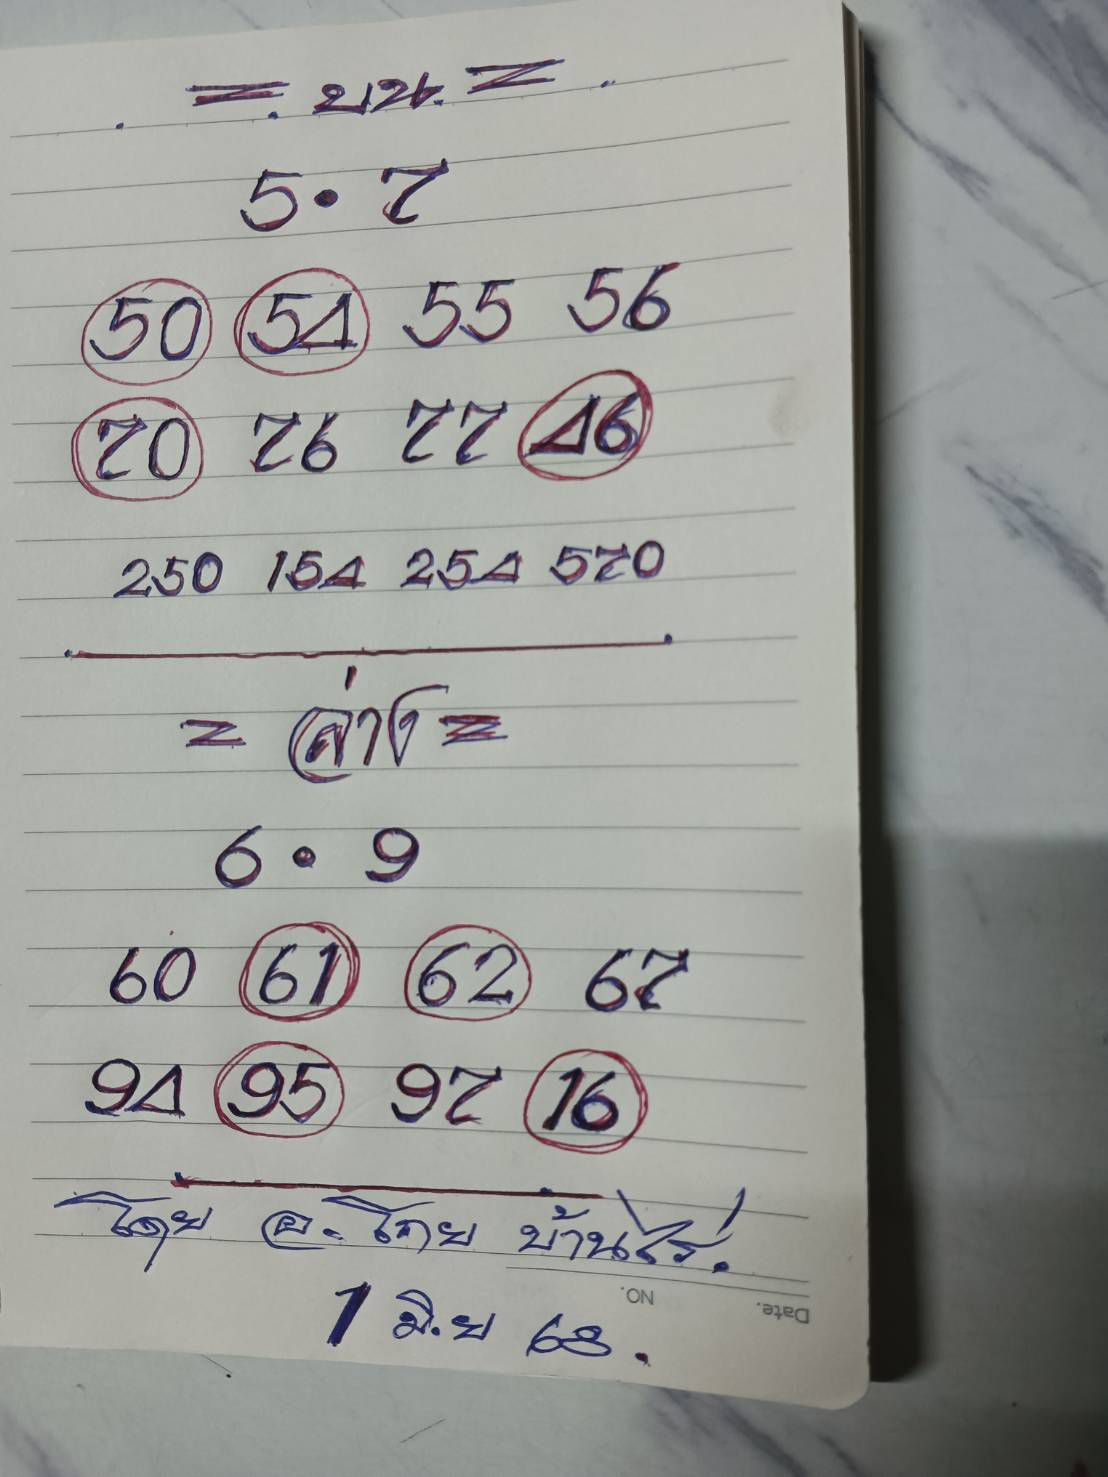 = บน =
5 • 7
50 54 55 56
70 76 77 46
250 154 254 570
= ล่าง =
6 • 9
60 61 62 67
94 95 97 16
โดย อ. โกย บ้านไร่.
1 มิ.ย 68.
NO.
Date.